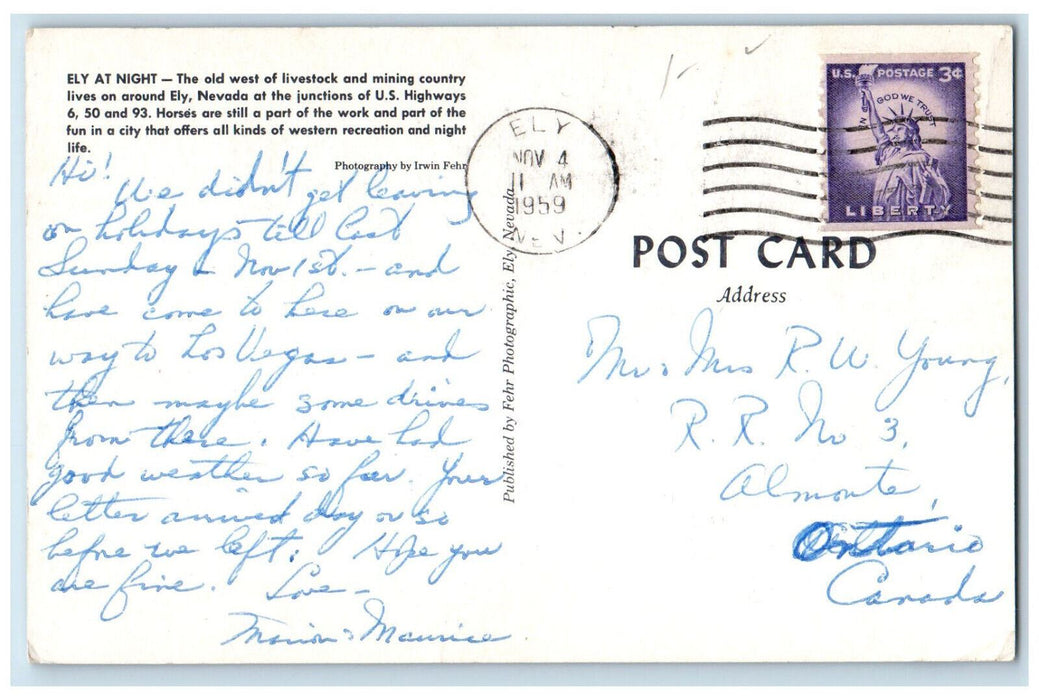 ELY AT NIGHT — The old west of livestock and mining country
lives on around Ely, Nevada at the junctions of U.S. Highways
6, 50 and 93. Horses are still a part of the work and part of the
fun in a city that offers all kinds of western recreation and night
life.
Photography by Irwin Fehr
Hi!
We didn't get leaving
on holidays till last
Sunday - Nov 1st. - and
have come to here on our
way to Los Vegas - and
then maybe some drives
from there. Have had
good weather so far. Your
letter arrived day or so
before we left. Hope you
are fine. Love -
Marion & Maurice
Published by Fehr Photographic, Ely, Nevada
ELY
NOV 4
11 AM
1959
NEV.
U.S. POSTAGE 3¢
IN GOD WE TRUST
LIBERTY
POST CARD
Address
Mr & Mrs R. W. Young,
R. R. No 3,
Almonte,
Ontario
Canada